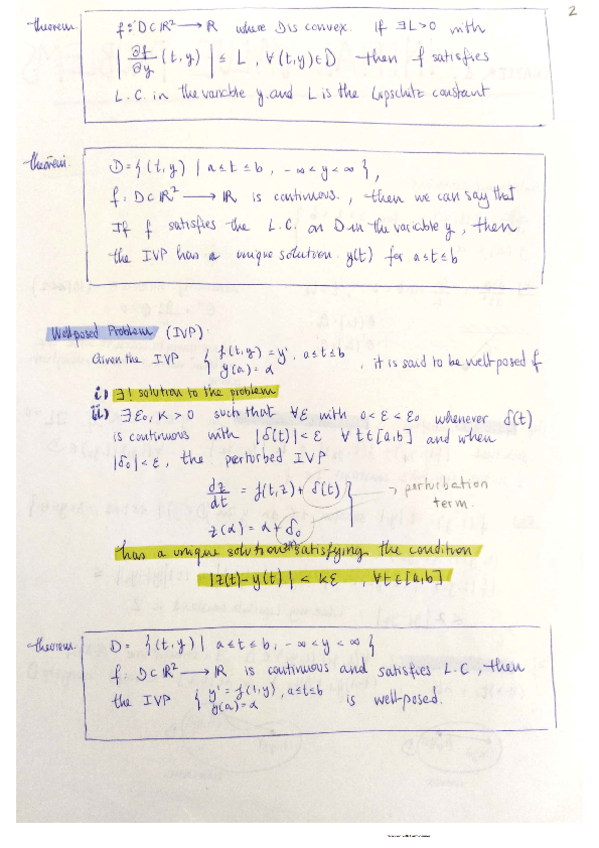 2
theorem
f: D⊂ℝ² → ℝ where D is convex. If ∃L>0 with
|∂f/∂y (t,y)| ≤ L, ∀(t,y)∈D then f satisfies
L.C. in the variable y. and L is the Lipschitz constant
theorem.
D={(t,y) | a≤t≤b, -∞<y<∞},
f: D⊂ℝ² → ℝ is continuous., then we can say that
If f satisfies the L.C. on D in the variable y, then
the IVP has a unique solution. y(t) for a≤t≤b
Well-posed Problem (IVP).
Given the IVP { f(t,y)=y', a≤t≤b
y(a)=α , it is said to be well-posed if
i) ∃! solution to the problem
ii) ∃ε₀, K>0 such that ∀ε with 0<ε<ε₀ whenever δ(t)
is continuous with |δ(t)|<ε ∀t∈[a,b] and when
|δ₀|<ε, the perturbed IVP
dz/dt = f(t,z) + δ(t) } → perturbation term.
z(a) = α + δ₀
has a unique solution z(t) satisfying the condition
|z(t)-y(t)| < Kε , ∀t∈[a,b]
theorem
D= {(t,y) | a≤t≤b, -∞<y<∞}
f: D⊂ℝ² → ℝ is continuous and satisfies L.C, then
the IVP { y'=f(t,y), a≤t≤b
y(a)=α is well-posed.